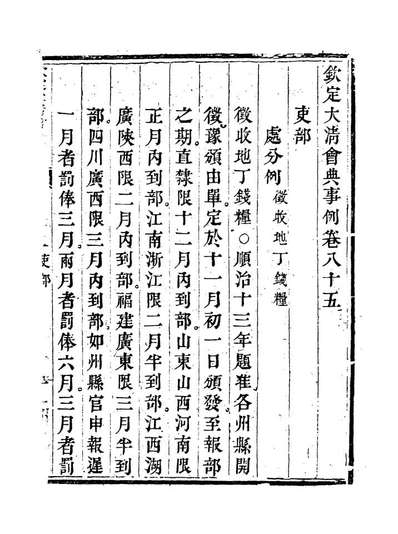 欽定大淸會典事例卷八十五
吏部
處分例 徵收地丁錢糧
徵收地丁錢糧○順治十三年題准各州縣開
徵豫頒由單定於十一月初一日頒發至報部
之期直隸限十二月內到部山東山西河南限
正月內到部江南浙江限二月半到部江西湖
廣陝西限二月內到部福建廣東限三月半到
部四川廣西限三月內到部如州縣官申報遲
一月者罰俸三月兩月者罰俸六月三月者罰
吏部